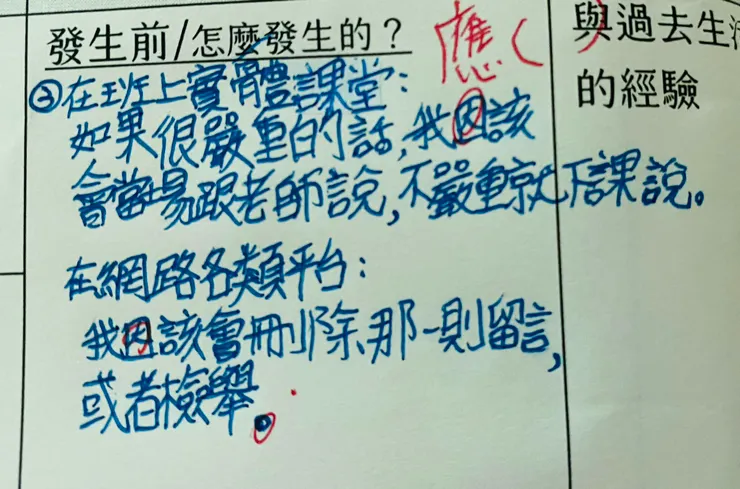 發生前/怎麼發生的？
應
與過去生活
的經驗
②在班上實體課堂：
如果很嚴重的話，我因該
會當場跟老師說，不嚴重就下課說。
在網路各類平台：
我因該會刪除那一則留言，
或者檢舉。